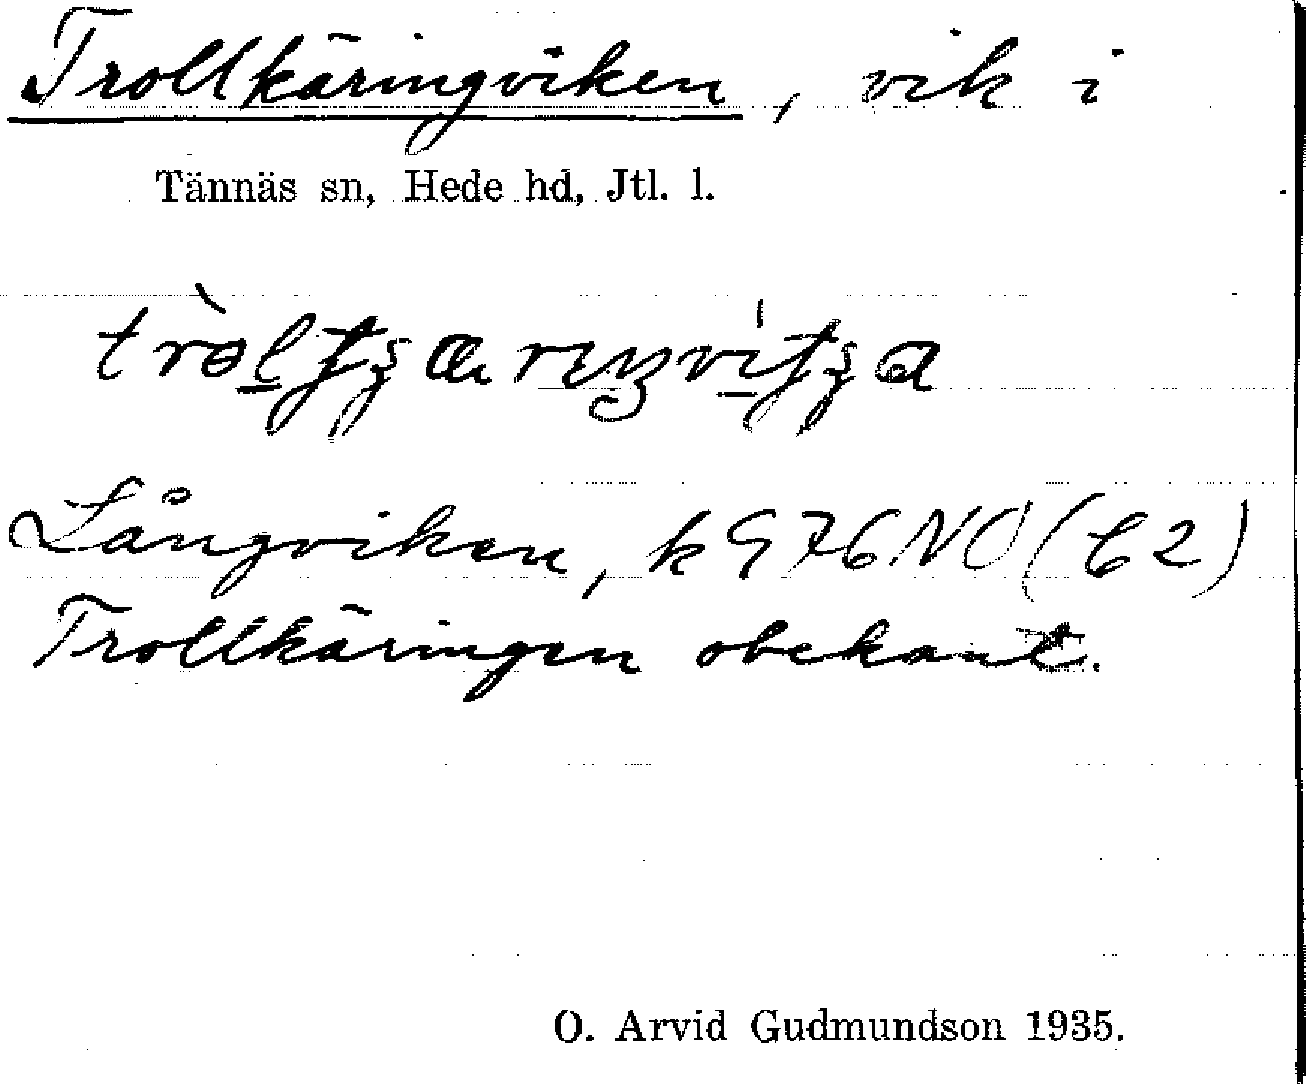 Trollkäringviken, vik i
Tännäs sn, Hede hd, Jtl. l.
Långviken, k 976 NO (C2)
Trollkäringen obekant.
O. Arvid Gudmundson 1935.